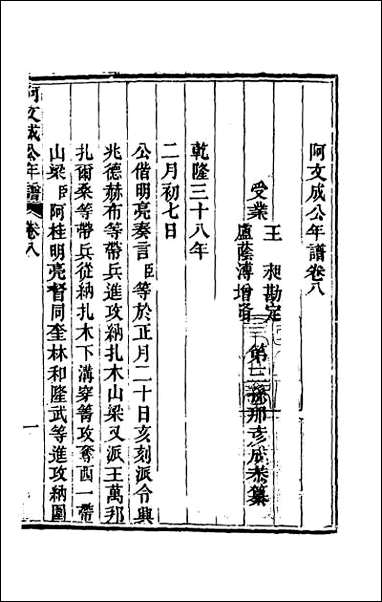 阿文成公年譜卷八
受業
王昶勘定
盧蔭溥增脩
第三孫那彥成恭纂
乾隆三十八年
二月初七日
公偕明亮奏言臣等於正月二十日亥刻派令興
兆德赫布等帶兵進攻納扎木山梁又派王萬邦
扎爾桑等帶兵從納扎木下溝穿箐攻奪西一帶
山梁臣阿桂明亮督同奎林和隆武等進攻納圍
阿文成公年譜 卷八 一